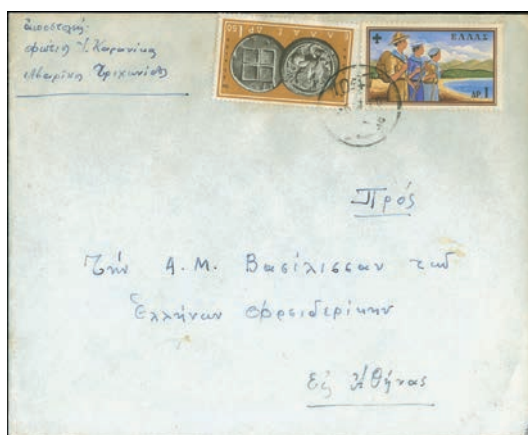 ἀποστολεύς
Φώτιος Ἰ. Καρανίκα
Ἀβαρίκη Τριχωνίδος
ΕΛΛΑΣ ΔΡ. 1.50
ΕΛΛΑΣ
ΔΡ 1
Πρός
Τήν Α. Μ. Βασίλισσαν τῶν
Ἑλλήνων Φρειδερίκην
Εἰς Ἀθήνας